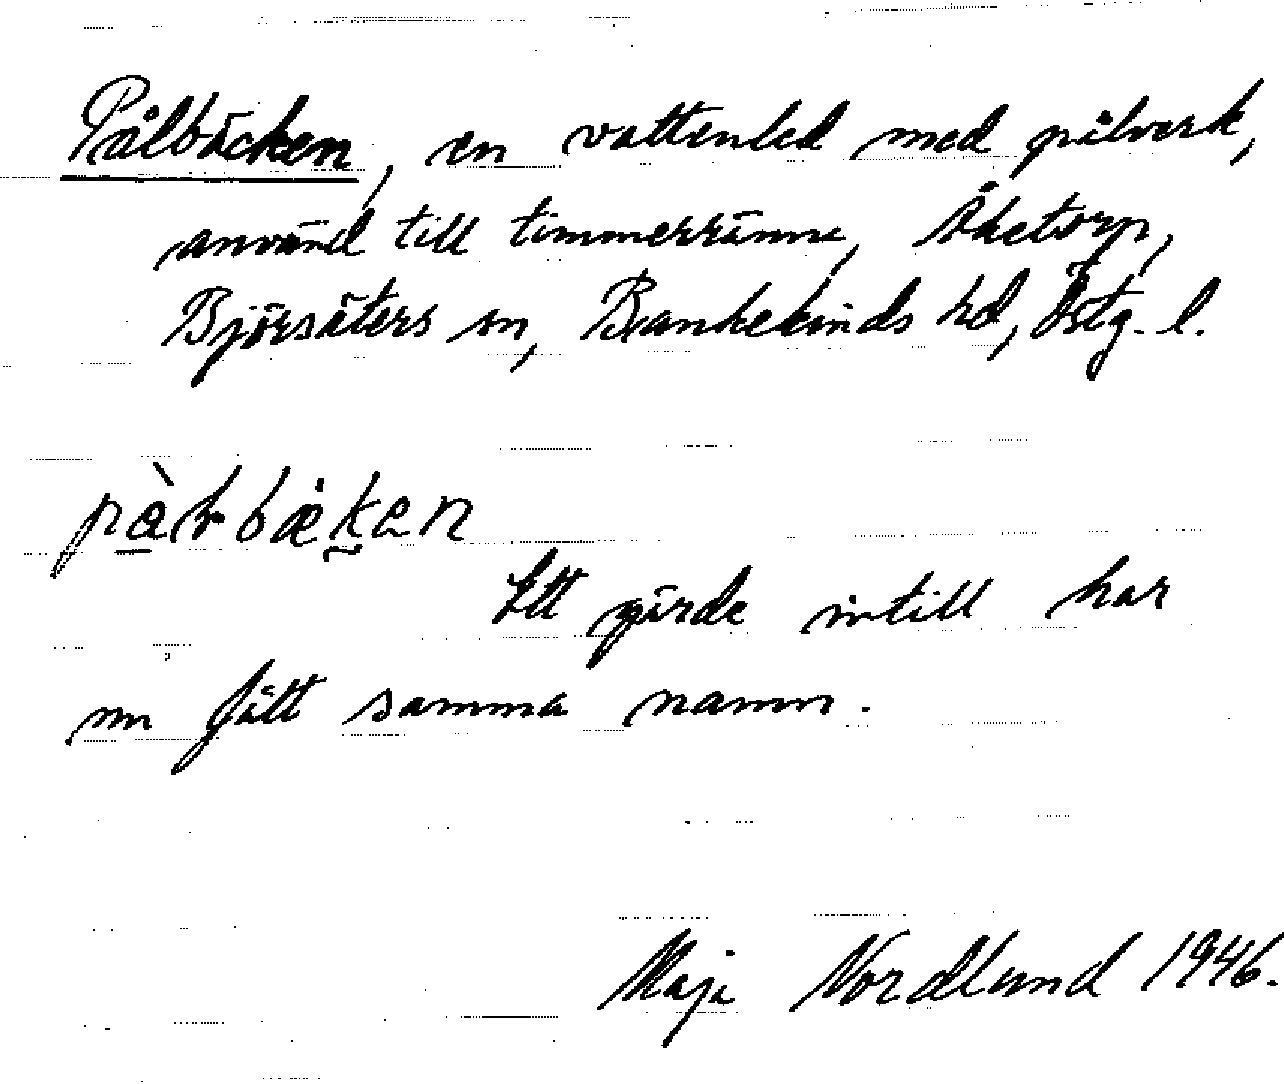 Pålbäcken, en vattenled med pålverk,
använd till timmerränna, Åketorp,
Björsäters sn, Bankekinds hd, Östg. l.
Ett gärde intill har
nu fått samma namn.
Maja Nordlund 1946.